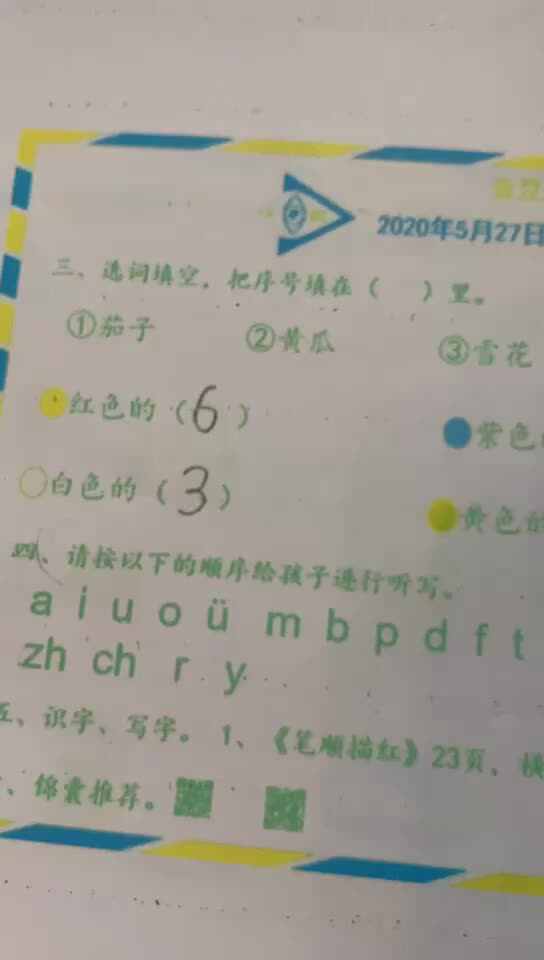 2020年5月27日
三、选词填空,把序号填在( )里。
①茄子 ②黄瓜 ③雪花
红色的(6) 紫色
白色的(3) 黄色的
四、请按以下的顺序给孩子进行听写。
a i u o ü m b p d f t
zh ch r y
五、识字、写字。1、《笔顺描红》23页、
、锦囊推荐。